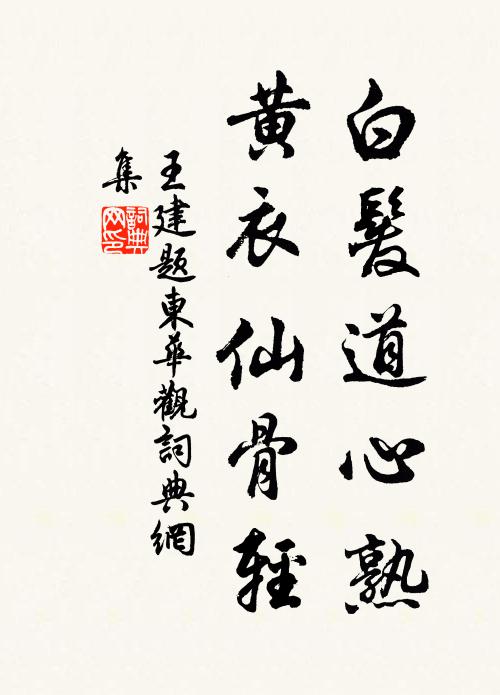 白髮道心熟
黄衣仙骨輕
王建題東華觀詞典網
集
詞典網印